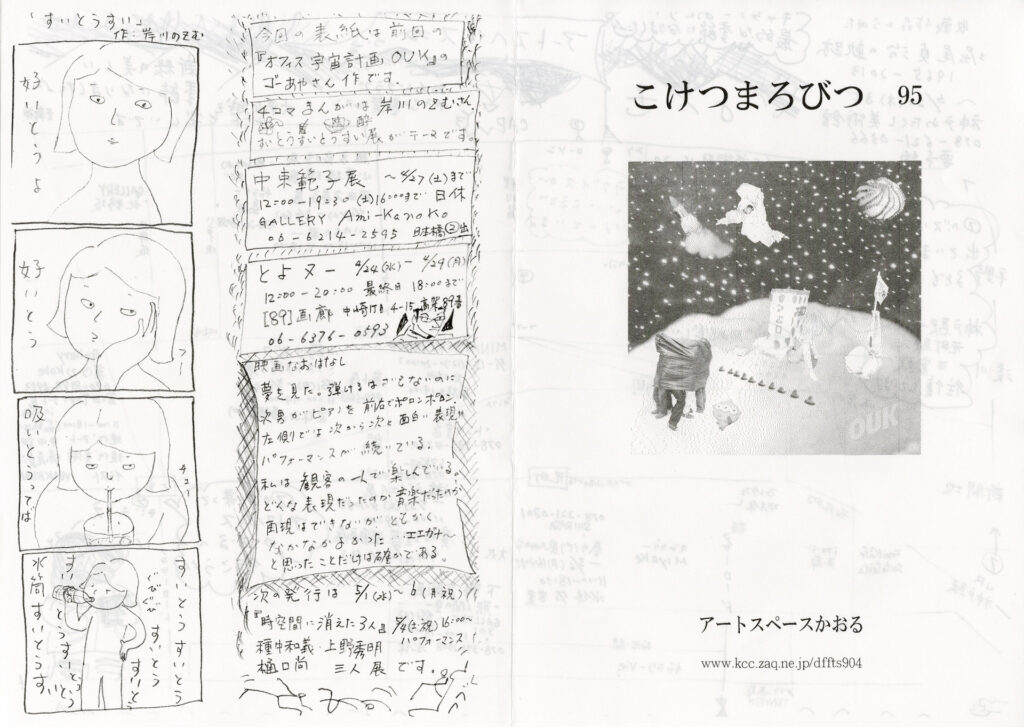 「すいとうすい」
作:岸川のぞむ
好いとうよ
好いとう
吸いとうってば
チュー
すいとうすいとう
ぐびぐび
すいとうすいとう
水筒すいとうすい
今回の表紙は前回の
『オフィス宇宙計画OUK』の
ゴーあやさん作です.
4コマまんがは岸川のぞむさん.
すいとうすいとうすい展がテーマです.
中東範子展 〜4/27(土)まで
12:00-19:30 (土)16:00まで 日休
GALLERY Ami-Kanoko
06-6214-2595 日本橋②出
とよヌー 4/24(水)-4/29(月)
12:00-20:00 最終日18:00まで
[89]画廊 中崎1丁目4-15高架89番
06-6376-0593
映画なおはなし
夢を見た。弾けるはずもないのに
次男がピアノを前右でポロンポロン.
左側では次から次と面白い表現
パフォーマンスが続いている。
私は観客の一人で楽しんでいる。
どんな表現だったのか音楽だったのか
再現はできないがともかく
なかなかよかった…エエガナ〜
と思ったことだけは確かである。
次の発行は 5/1(水)〜6(月・祝)
『時空間に消えた3人』5/4(土・祝)16:00〜
種中和義・上野秀明 パフォーマンス
樋口尚 三人展です。!
こけつまろびつ 95
OUK
アートスペースかおる
www.kcc.zaq.ne.jp/dffts904